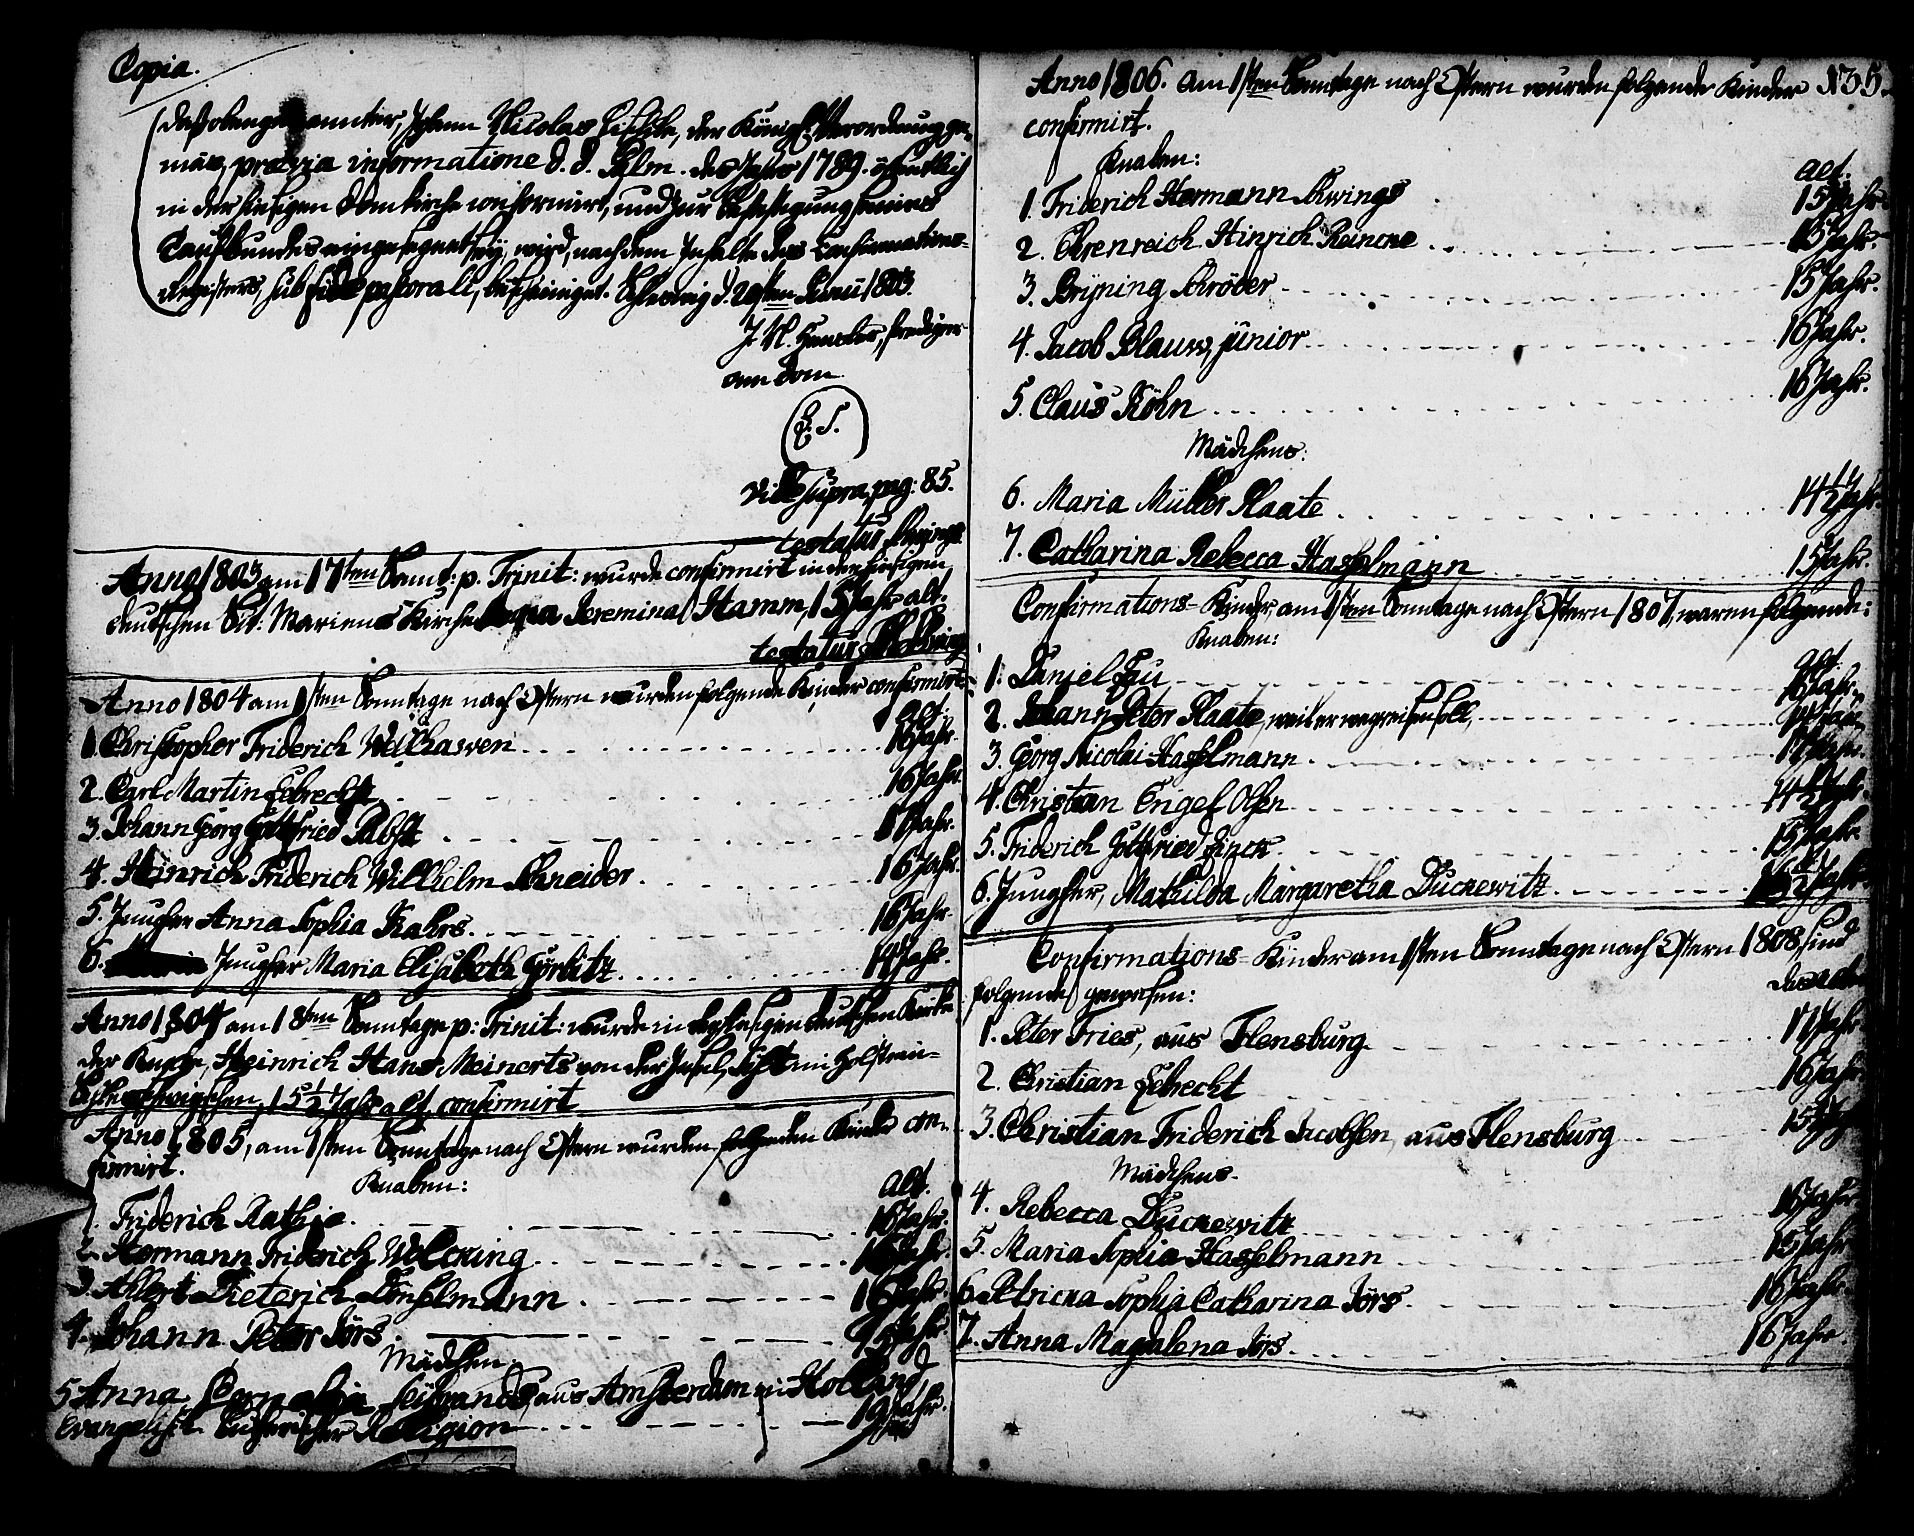 Copia.
Daß obengenannter, Johann Nicolas der Königl. Verordnung ge-
mäs, prævia informatione d. d. Palm. des Jahrs 1789. öfentlich
in der hiesigen Domkirche confirmirt, und zur Befestigung seines
Taufbundes eingesegnet sey, wird, nach dem Inhalte des Confirmations-
Registers, sub fide pastorali, bescheiniget. Schleswig d. 29sten 1803.
J. N. Prediger
am Dom
(L. S.)
vide supra pag: 85.
testatur
Anno 1803 am 17ten Sonnt: p. Trinit: wurde confirmirt in der hiesigen
deutschen Sct: Mariens Kirche Jeremina Hamm, 15 Jahr alt.
testatur
Anno 1804 am 1sten Sonntage nach Ostern wurden folgende Kinder confirmirt:
alt.
1. Christopher Friderich Welhawen 16 Jahr.
2. Carl Martin Lebrecht 16 Jahr.
3. Johann Georg Gottfried Pabst Jahr.
4. Heinrich Friderich Wilhelm Schneider 16 Jahr.
5. Jungfer Anna Sophia Kahrs 16 Jahr.
6. Jungfer Maria Elisabeth Görlitz 14 Jahr.
Anno 1804 am 18ten Sonntage p: Trinit: wurde in der hiesigen deutschen Kirche
der Knabe, Heinrich Hans Meinerts von der Insel, Silt im Holstein-
Schleswigschen, 15½ Jahr alt confirmirt
Anno 1805, am 1sten Sonntage nach Ostern wurden folgenden Kinder con-
firmirt.
Knaben: alt.
1. Friderich Rathje 16 Jahr.
2. Hermann Friderich Welcking 16 Jahr.
3. Allert Dieterich Dönselmann 16 Jahr.
4. Johann Peter Jörs 15 Jahr.
Mädchen
5 Anna Cornelia aus Amsterdam in Holland,
Evangelisch Lutherischer Religion 19 Jahr.
Anno 1806. am 1sten Sonntage nach Ostern wurden folgende Kinder 135.
confirmirt.
Knaben: alt.
1. Friderich Hermann Schwings 15 Jahr.
2. Ehrenreich Hinrich Reincke 15 Jahr.
3. Bryning Schröder 15 Jahr.
4. Jacob Blauw, junior 16 Jahr.
5. Claus Köhn 16 Jahr.
Mädchens:
6. Maria Müller Plaate 14½ Jahr.
7. Catharina Rebecca Hasselmann 15 Jahr.
Confirmations-Kinder, am 1sten Sonntage nach Ostern 1807, waren folgende:
Knaben:
alt.
1. Daniel Fau 16 Jahr.
2. Johann Peter Plaate, weil er wegreisen soll, Jahr.
3. Georg Nicolai Hasselmann Jahr.
4. Christian Engel Olsen 14½ Jahr.
5. Friderich Gottfried Finck 15 Jahr.
6. Jungfer, Mathilda Margaretha Duckewitz Jahr.
Confirmations-Kinder am 1sten Sonntage nach Ostern 1808, sind
folgende gewesen:
1. Peter Fries, aus Flensburg 17 Jahr.
2. Christian Lebrecht 16 Jahr
3. Christian Friderich Jacobsen aus Flensburg
Mädchens.
4. Rebecca Duckewitz 16 Jahr
5. Maria Sophia Hasselmann 15 Jahr
6. Petricka Sophia Catharina Jörs 16 Jahr.
7. Anna Magdalena Jörs 16 Jahr